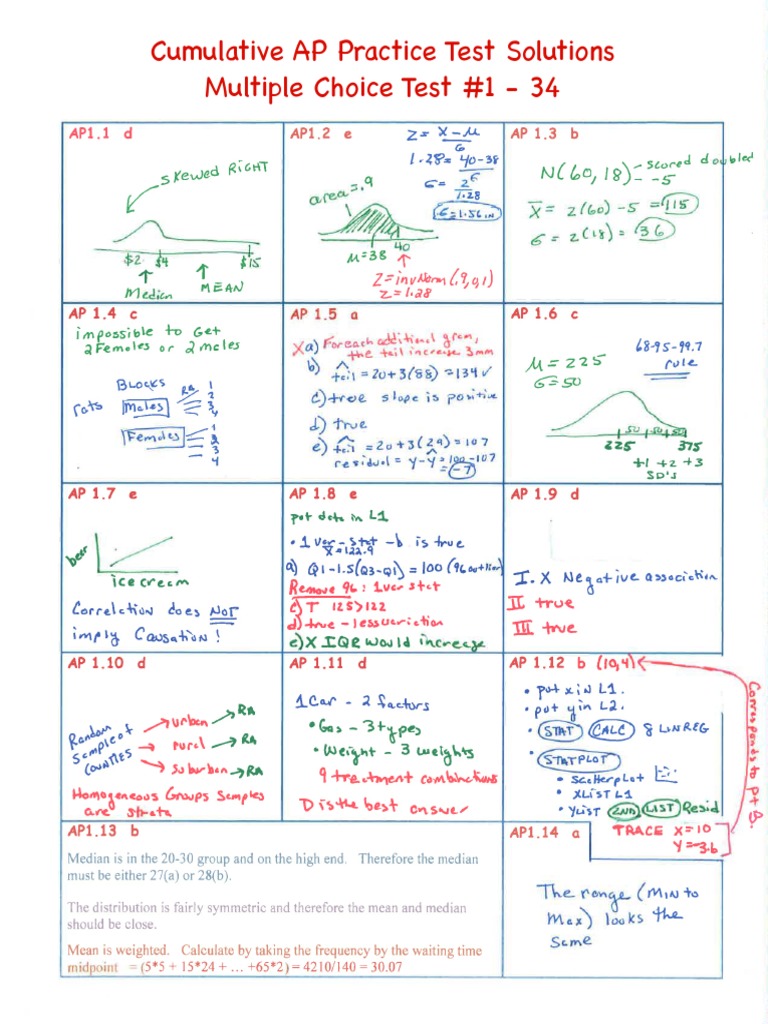 Cumulative AP Practice Test Solutions
Multiple Choice Test #1 - 34
AP1.1 d
SKEWED RIGHT
$2 $4 $15
Median
MEAN
AP1.2 e
Z = X - M
σ
1.28 = 40-38
σ
σ = 2
1.28
σ = 1.56 in
area = .9
M = 38
40
Z = invNorm (.9,0,1)
Z = 1.28
AP 1.3 b
N(60, 18) - scored doubled
- -5
X̄ = 2(60) - 5 = 115
σ = 2(18) = 36
AP 1.4 c
impossible to Get
2 Females or 2 males
BLOCKS
rats
Males
RA
1
2
3
4
Females
1
2
3
4
AP 1.5 a
X a) For each additional gram,
the tail increase 3mm
b) tail = 20+3(88) = 134 ✓
c) true slope is positive
d) true
e) tail = 20+3(29) = 107
residual = y-ŷ = 100-107
= -7
AP 1.6 c
M = 225
σ = 50
68-95-99.7
rule
50 50 50
225 375
+1 +2 +3
SD'S
AP 1.7 e
beer
ice cream
Correlation does NOT
imply Causation!
AP 1.8 e
put data in L1
• 1 Var - Stat - b is true
X̄ = 122.9
a) Q1-1.5(Q3-Q1) = 100 (96 outlier)
Remove 96: 1 var stat
c) T 125>122
d) true - less variction
e) X IQR would increase
AP 1.9 d
I. X Negative association
II true
III true
AP 1.10 d
Random
Sample of
COUNTIES
urban
RA
rural
RA
suburban
RA
Homogeneous Groups Samples
are strata
AP 1.11 d
1 Car - 2 factors
• Gas - 3 types
• Weight - 3 weights
9 treatment combinations
D is the best answer
AP 1.12 b (10,4)
• put x in L1.
• put y in L2.
• STAT CALC 8 LINREG
• STATPLOT
• Scatterplot
• XLIST L1
• YLIST 2ND LIST Resid
TRACE X=10
Y=-3.6
Corresponds to pt B.
AP1.13 b
Median is in the 20-30 group and on the high end. Therefore the median
must be either 27(a) or 28(b).
The distribution is fairly symmetric and therefore the mean and median
should be close.
Mean is weighted. Calculate by taking the frequency by the waiting time
midpoint = (5*5 + 15*24 + ... +65*2) = 4210/140 = 30.07
AP1.14 a
The range (MIN to
Max) looks the
same